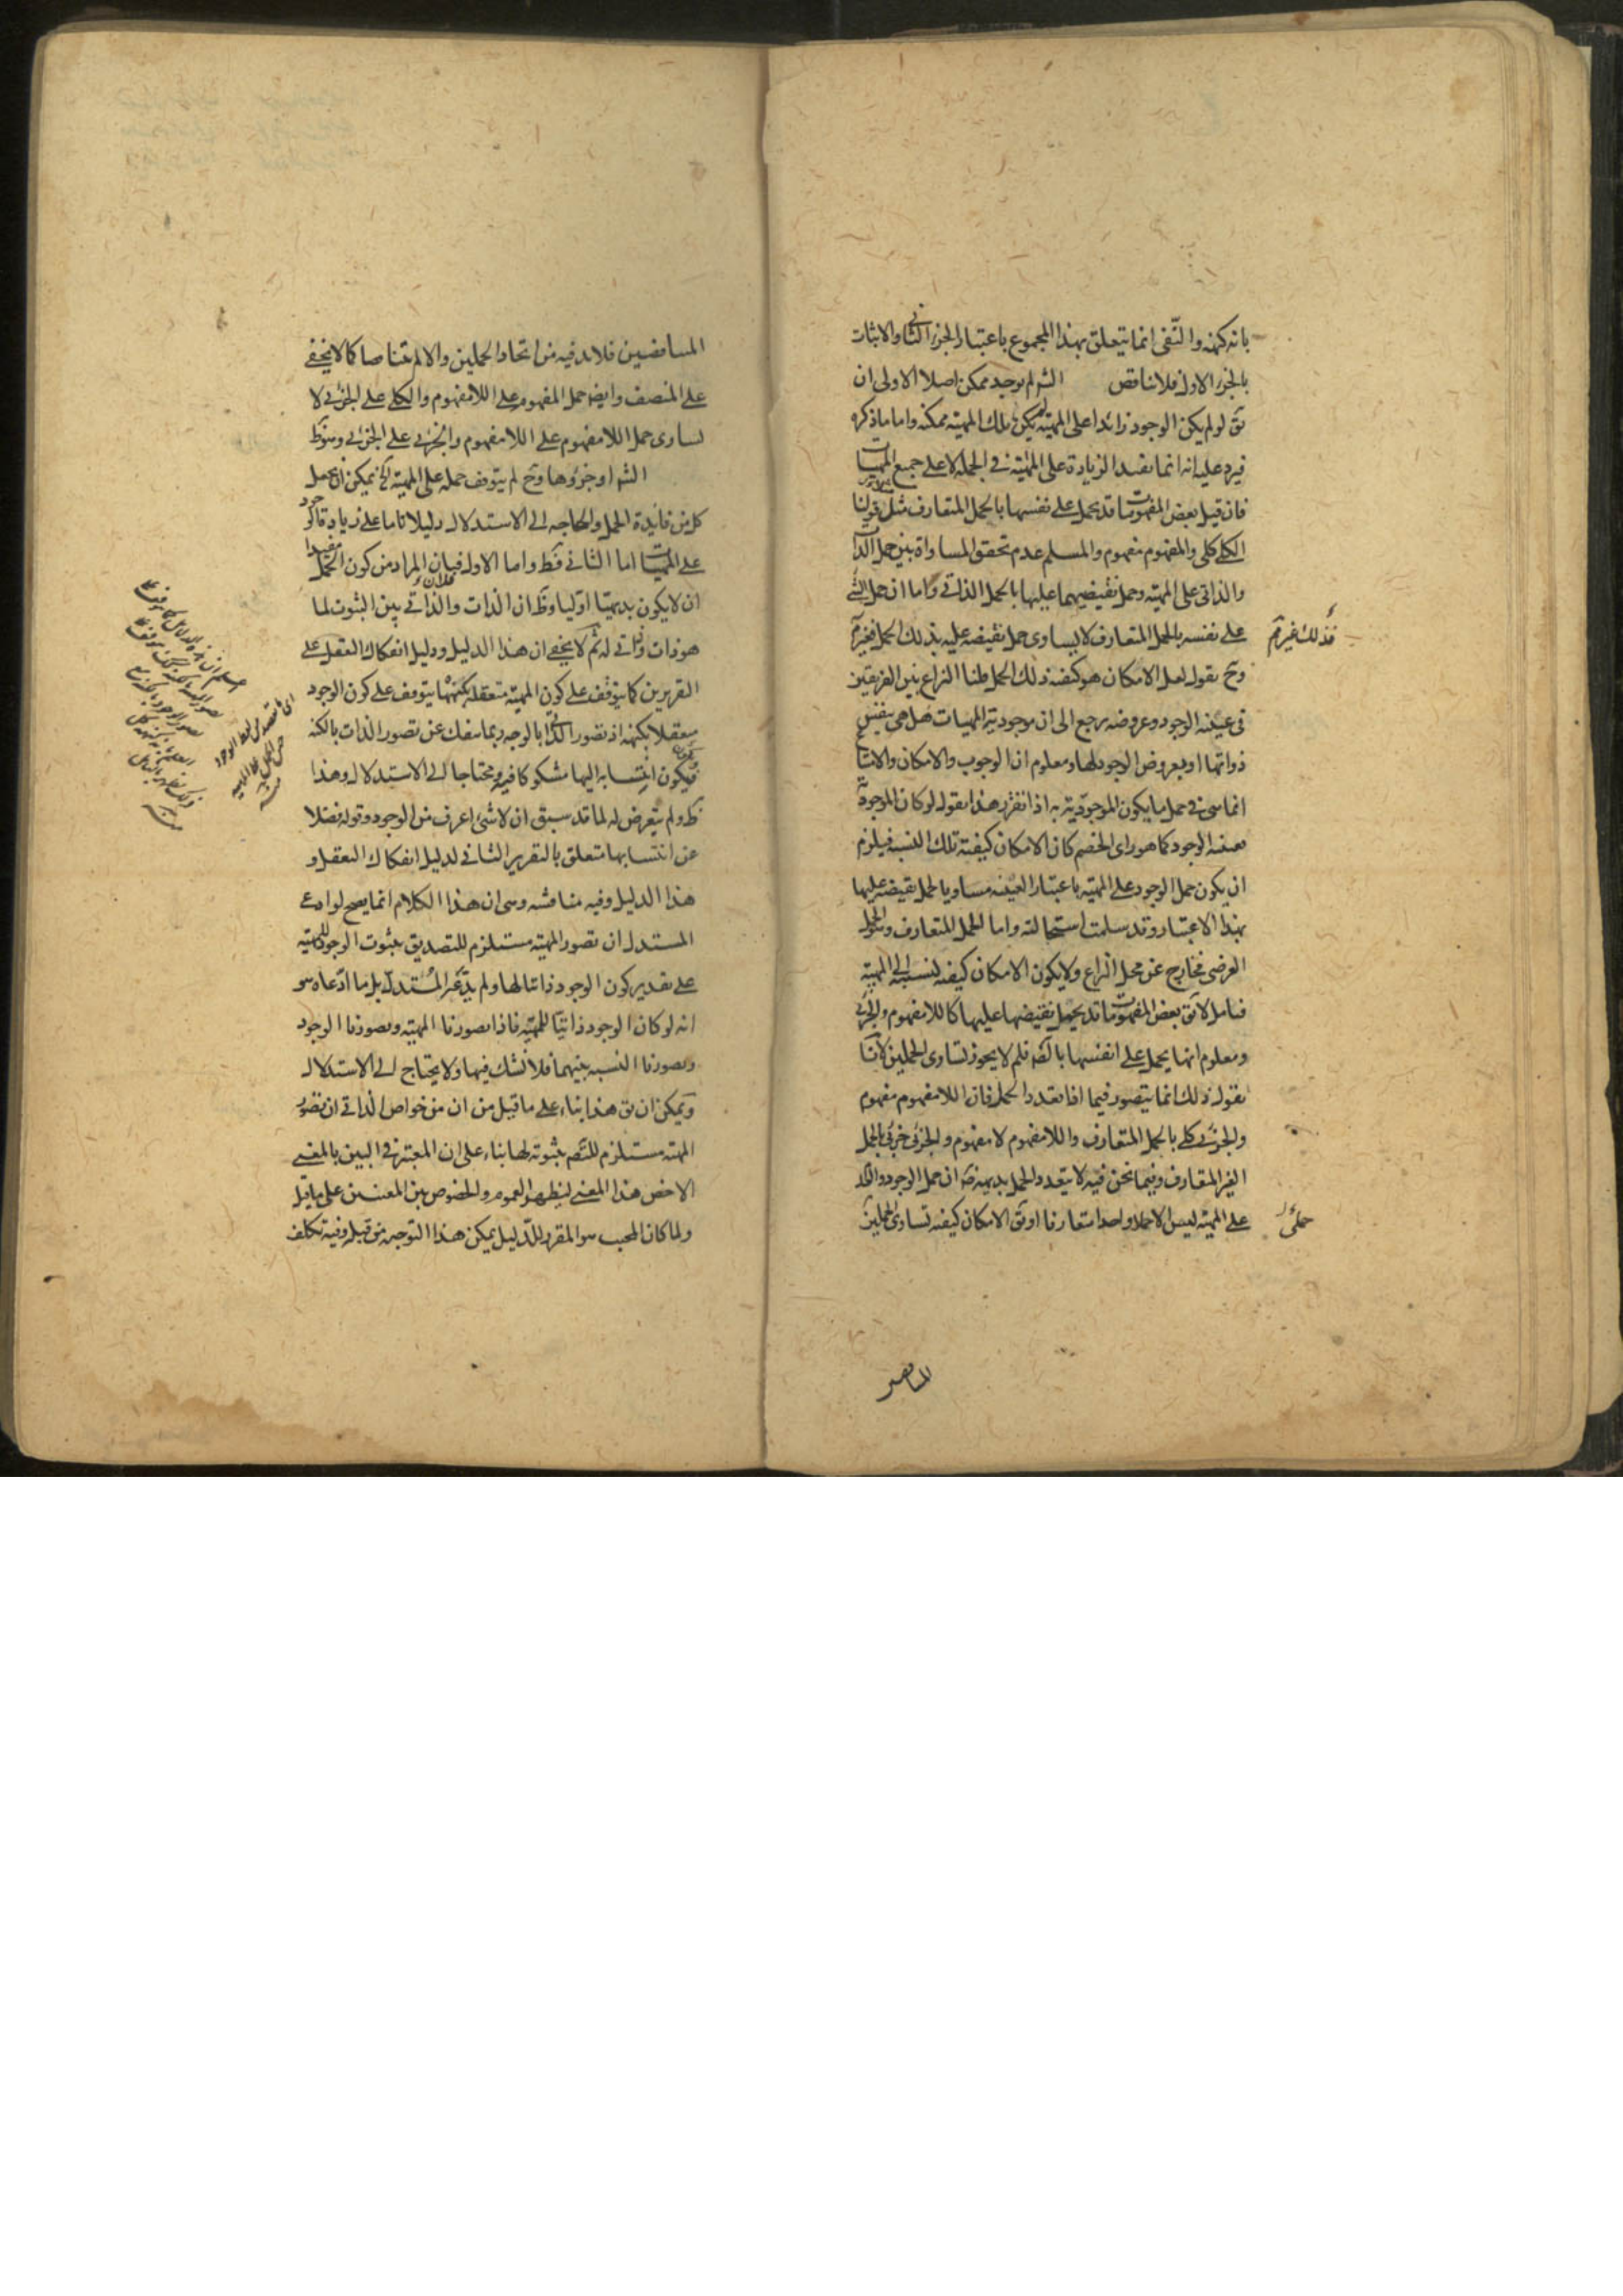 بانه كنهه والنّفى انما يتعلق بهذا المجموع باعتبار الجزء الثانى والاثبات
بالجزء الاول فلا تناقض الش لم يوجد ممكن اصلا الاولى ان
يق لو لم يكن الوجود زائدا على المهية لم يكن تلك المهية ممكنه واما ما ذكره
فيرد عليه انه انما يفيد الزيادة على المهية فى الجملة لا على جميع المهيات
فان قيل بعض المفهومات قد يحمل على نفسها بالحمل المتعارف مثل قولنا
الكلى كلى والمفهوم مفهوم والمسلم عدم تحقق المساواة بين حمل الذات
والذاتى على المهية وحمل نقيضيهما عليها بالحمل الذاتى واما ان حمل الشئ
على نفسه بالحمل المتعارف لا يساوى حمل نقيضه عليه بذلك الحمل فغير م
فذلك غير م
وح نقول لعل الامكان هو كيفية ذلك الحمل قلنا النزاع بين الفريقين
فى عينية الوجود وعروضه يرجع الى ان موجودية المهيات هل هى بنفس
ذواتها او بعروض الوجود لها ومعلوم ان الوجوب والامكان والامتناع
انما هى فى حمل ما يكون الموجودية به اذا تقرر هذا نقول لو كان الموجودية
بعينية الوجود كما هو راى الخصم كان الامكان كيفية تلك النسبة فيلزم
ان يكون حمل الوجود على المهية باعتبار العينية مساويا لحمل نقيضه عليها
بهذا الاعتبار وقد سلمت استحالته واما الحمل المتعارف والحمل
العرضى فخارج عن محل النزاع ولا يكون الامكان كيفية لنسبته الى المهية
فتامل لا يق بعض المفهومات قد يحمل نقيضها عليها كاللامفهوم والجزئى
ومعلوم انها يحمل على انفسها بالضرورة فلم لا يجوز تساوى الحملين لانا
نقول ذلك انما يتصور فيما اذا تعدد الحمل فان اللامفهوم مفهوم
والجزئى كلى بالحمل المتعارف واللامفهوم لا مفهوم والجزئى جزئى بالحمل
الغير المتعارف وفيما نحن فيه لا يتعدد الحمل بديهة ان حمل الوجود
على المهية ليس الا حملا واحدا متعارفا او يق الامكان كيفية تساوى الحملين
حملى
المتناقضين فلا بد فيه من اتحاد الحملين والا لم يتناقضا كما لا يخفى
على المنصف وايضا حمل المفهوم على اللامفهوم والكلى على الجزئى لا
يساوى حمل اللامفهوم على اللامفهوم والجزئى على الجزئى وهو ظ
الش او جزؤها وح لم يتوقف حمله على المهية الخ يمكن ان يجعل
كل من فائدة الحمل والحاجة الى الاستدلال دليلا تاما على زيادة الوجود
على المهيات اما الثانى فظ واما الاول فلان المراد من كون الحمل مفيدا
ان لا يكون بديهيا اوليا وظ ان الذات والذاتى بين الثبوت لما
هو ذات وذاتى له ثم لا يخفى ان هذا الدليل ودليل انفكاك التعقل على
التقريرين كما يتوقف على كون المهية متعقلة بكنهها يتوقف على كون الوجود
متعقلا بكنهه اذ تصور الذاتى بالوجه ربما ينفك عن تصور الذات بالكنه
فيكون انتسابه اليها مشكوكا فيه ومحتاجا الى الاستدلال وهذا
ظ ولم يتعرض له لما قد سبق ان لا شئ اعرف من الوجود وقوله فضلا
عن انتسابها متعلق بالتقرير الثانى لدليل انفكاك التعقل و
هذا الدليل وفيه مناقشه وهى ان هذا الكلام انما يصح لو ادعى
المستدل ان تصور المهية مستلزم للتصديق بثبوت الوجود للمهية
على تقدير كون الوجود ذاتيا لها ولم يدّع المستدل بل ما ادّعاه هو
انه لو كان الوجود ذاتيا للمهية فاذا تصورنا المهية وتصورنا الوجود
وتصورنا النسبة بينهما فلا نشك فيها ولا يحتاج الى الاستدلال
ويمكن ان يق هذا بناء على ما قيل من ان من خواص الذاتى ان تصور
المهية مستلزم للتصديق بثبوته لها بناء على ان المعتبر فى البين بالمعنى
الاخص هذا المعنى ليظهر العموم والخصوص بين المعنيين على ما قيل
ولما كان المجيب هو المقرر للدليل يمكن هذا التوجيه من قبله وفيه تكلف
المتناقضين